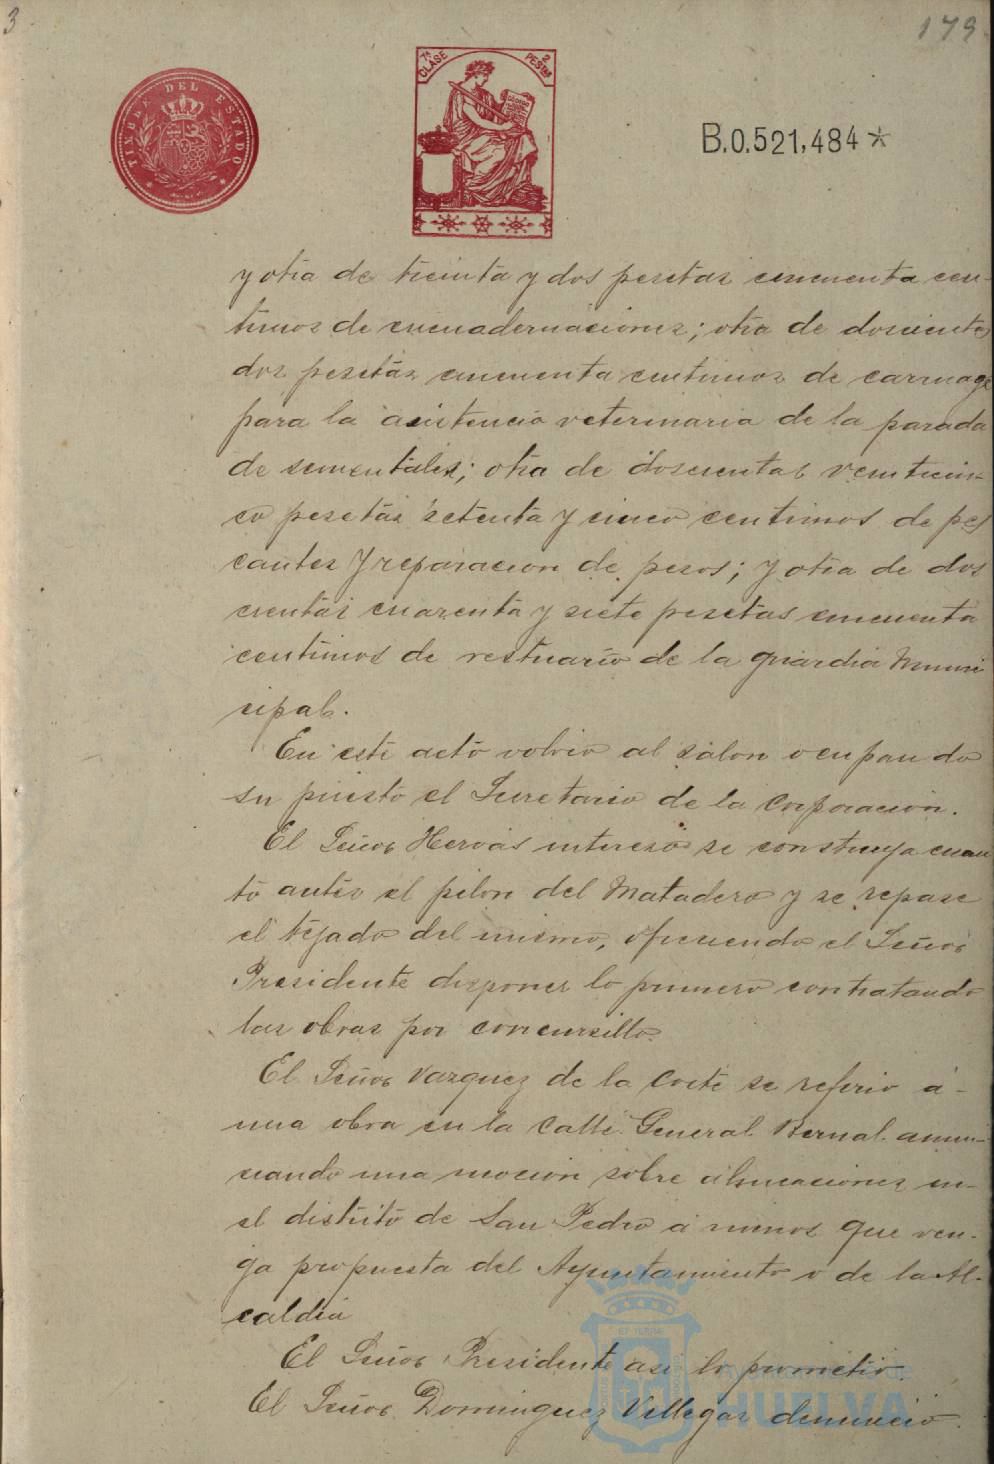 3
179
TIMBRE DEL ESTADO
7ª CLASE
2 PESTAS
B.0.521,484 *
y otra de treinta y dos pesetas cincuenta cen-
timos de encuadernaciones; otra de doscientas
dos pesetas cincuenta centimos de carruage
para la asistencia veterinaria de la parada
de sementales; otra de doscientas veinticin-
co pesetas setenta y cinco centimos de pes
cantes y reparacion de pesos; y otra de dos
cientas cuarenta y siete pesetas cincuenta
centimos de vestuario de la guardia Muni
cipal.
En este acto volvio al salon ocupando
su puesto el Secretario de la Corporacion.
El Señor Hervás interesó se construya cuan
to antes el pilon del Matadero y se repase
el tejado del mismo, ofreciendo el Señor
Presidente disponer lo primero contratando
las obras por concursillo.
El Señor Vazquez de la Corte se refirio á-
una obra en la Calle General Bernal anun-
ciando una mocion sobre alineaciones en-
el distrito de San Pedro á menos que ven-
ga propuesta del Ayuntamiento o de la Al-
caldia
El Señor Presidente asi lo prometió.
El Señor Dominguez Villegas denunció
Ayuntamiento de
HUELVA